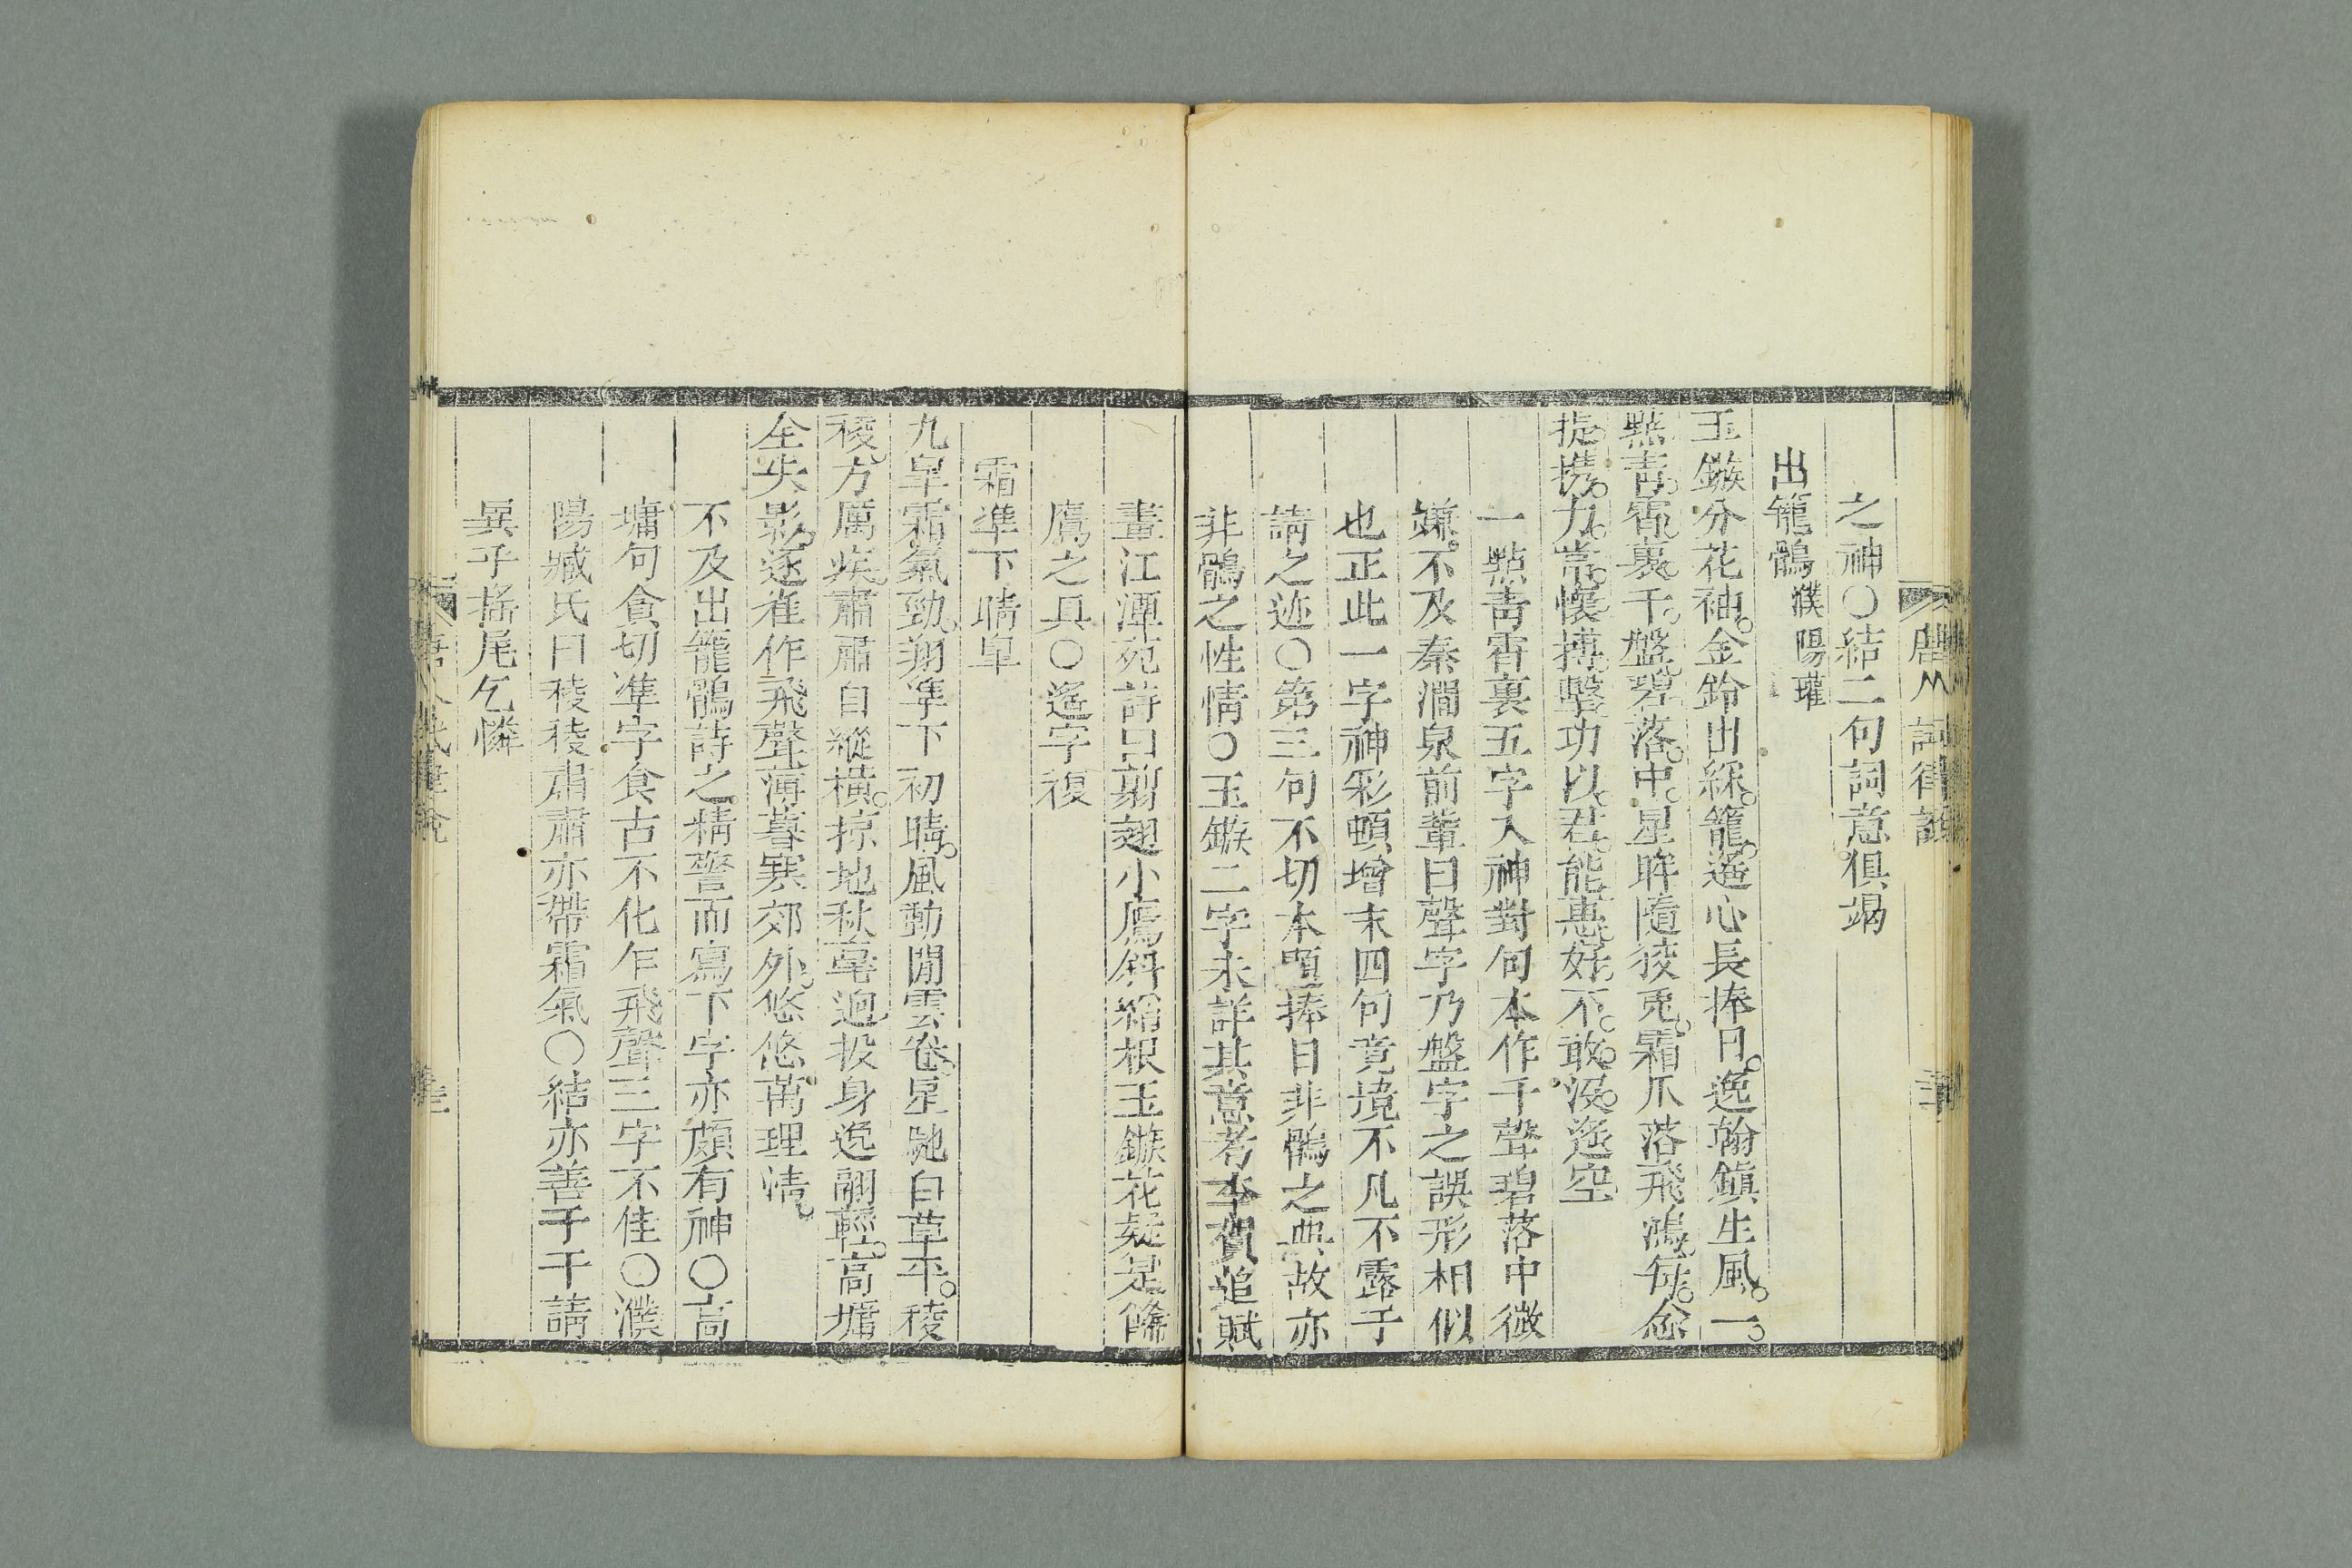 之神〇結二句詞意俱竭
出籠鶻 濮陽瓘
玉鏃分花袖金鈴出綵籠遥心長捧日逸翰鎭生風一
點青霄裏千盤碧落中星眸隨狡兎霜爪落飛鴻每念
提携力常懷搏擊功以君能惠好不敢没遥空
一點青霄裏五字入神對句本作千聲碧落中微
嫌不及秦澗泉前輩曰聲字乃盤字之誤形相似
也正此一字神彩頓增末四句竟境不凡不露于
請之迹〇第三句不切本題捧日非鶻之典故亦
非鶻之性情〇玉鏃二字未詳其意考李賀追賦
畫江潭苑詩曰剪翅小鷹斜縚根玉鏃花疑是餙
鷹之具〇遥字複
霜凖下晴皐
九皐霜氣勁翔凖下初晴風動閒雲卷星馳白草平稜
稜方厲疾肅肅自縱橫掠地秋毫迥投身逸翮輕高墉
全失影逐雀作飛聲薄暮寒郊外悠悠萬理淸
不及出籠鶻詩之精警而寫下字亦頗有神〇高
墉句貪切凖字食古不化乍飛聲三字不佳〇濮
陽臧氏曰稜稜肅肅亦帶霜氣〇結亦善于干請
異乎搖尾乞憐